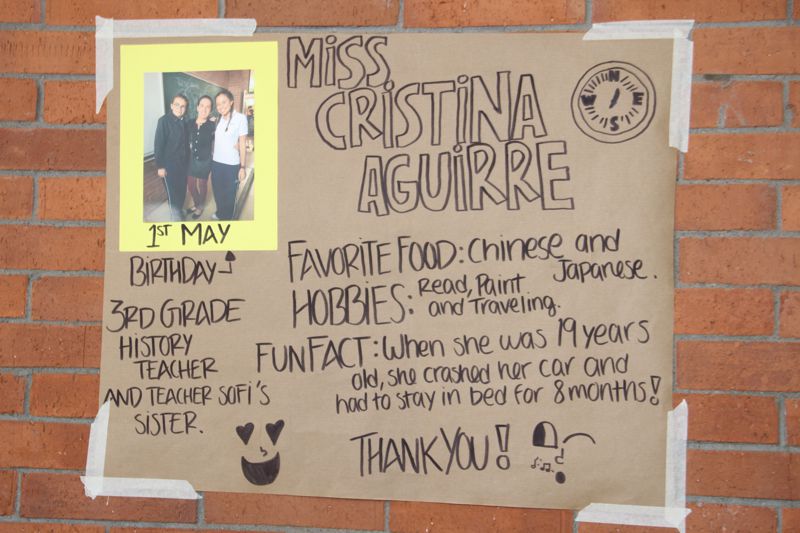 MiSS
CRiSTiNA
AGUiRRE
N
E
S
W
1ST MAY
BiRTHDAY
3RD GRADE
HiSTORY
TEACHER
AND TEACHER SOFi'S
SiSTER.
FAVORiTE FOOD: Chinese and
Japanese.
HOBBiES: Read, Paint
and Traveling.
FUN FACT: When she was 19 years
old, she crashed her car and
had to stay in bed for 8 months!
THANK YOU!